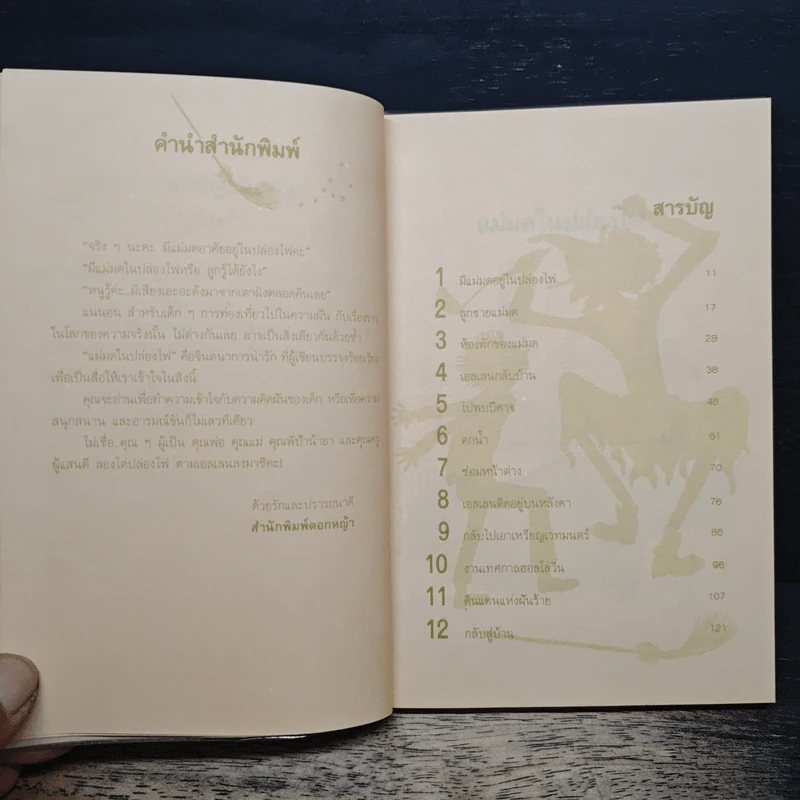 คำนำสำนักพิมพ์
"จริง ๆ นะคะ มีแม่มดอาศัยอยู่ในปล่องไฟค่ะ"
"มีแม่มดในปล่องไฟหรือ ลูกรู้ได้ยังไง"
"หนูรู้ค่ะ..มีเสียงเอะอะดังมาจากเตาผิงตลอดคืนเลย"
แน่นอน สำหรับเด็ก ๆ การท่องเที่ยวไปในความฝัน กับเรื่องราว
ในโลกของความจริงนั้น ไม่ต่างกันเลย อาจเป็นสิ่งเดียวกันด้วยซ้ำ
"แม่มดในปล่องไฟ" คือจินตนาการน่ารัก ที่ผู้เขียนบรรจงร้อยเรียง
เพื่อเป็นสื่อให้เราเข้าใจในสิ่งนี้
คุณจะอ่านเพื่อทำความเข้าใจกับความคิดฝันของเด็ก หรือเพื่อความ
สนุกสนาน และอารมณ์ขันก็ไม่เลวทีเดียว
ไม่เชื่อ..คุณ ๆ ผู้เป็น คุณพ่อ คุณแม่ คุณพี่ป้าน้าอา และคุณครู
ผู้แสนดี ลองไต่ปล่องไฟ ตามเอลเลนลงมาซิคะ!
ด้วยรักและปรารถนาดี
สำนักพิมพ์ดอกหญ้า
สารบัญ
1 มีแม่มดอยู่ในปล่องไฟ 11
2 ลูกชายแม่มด 17
3 ห้องพักของแม่มด 28
4 เอลเลนกลับบ้าน 38
5 ไปพบปีศาจ 48
6 ตกน้ำ 61
7 ซ่อมหน้าต่าง 70
8 เอลเลนติดอยู่บนหลังคา 76
9 กลับไปเอาเหรียญเวทมนตร์ 86
10 งานเทศกาลฮอลโลวีน 96
11 ดินแดนแห่งฝันร้าย 107
12 กลับสู่บ้าน 121